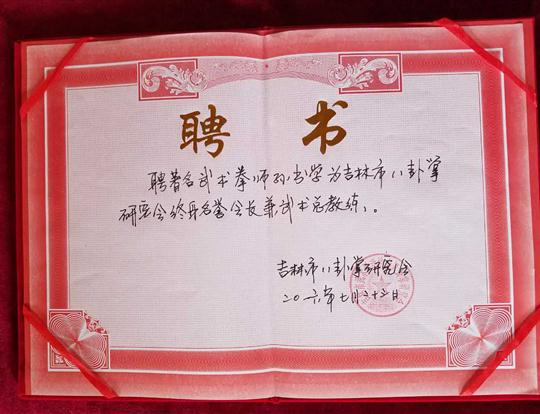 聘 书
聘著名武术拳师孙学为吉林市八卦掌
研究会终身名誉会长兼武术总教练。
吉林市八卦掌研究会
年七月日